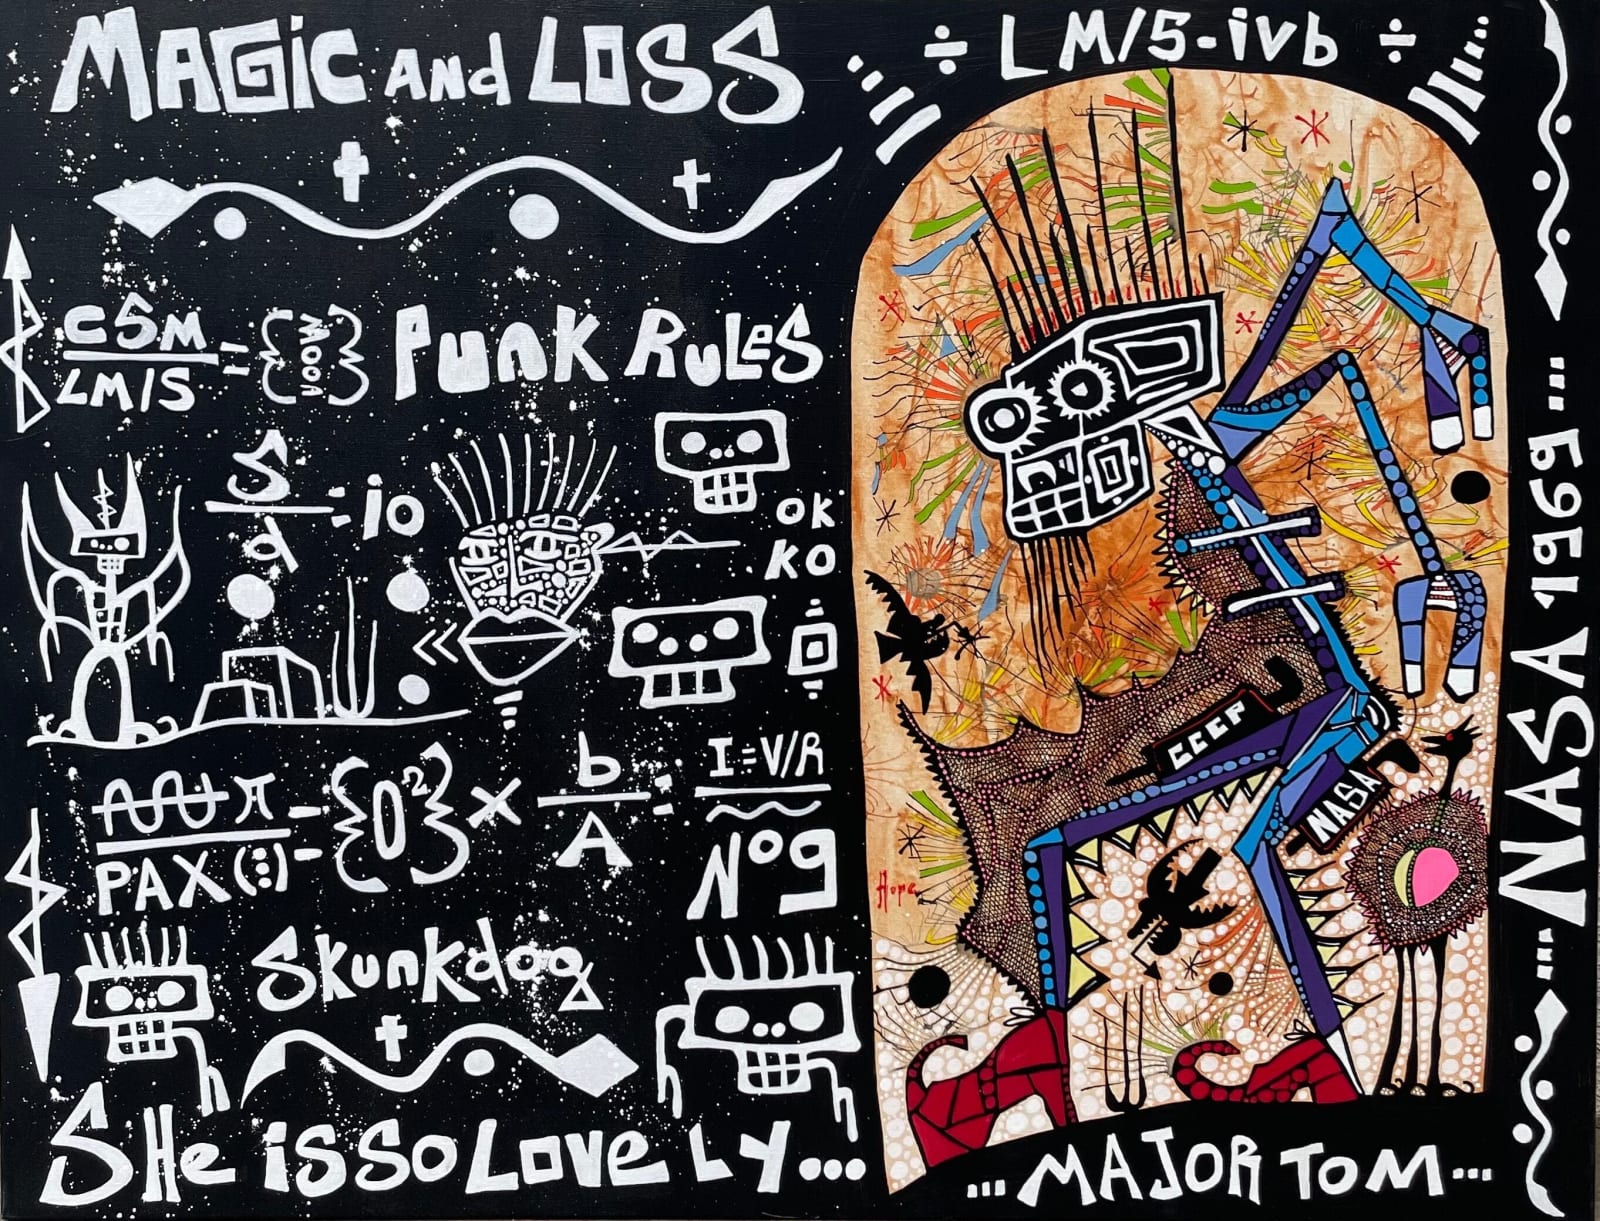 MAGiC AND LOSS
÷ LM/5-ivb ÷
CSM
LM/S
=
MOON
PUNK RULES
S
d
= io
OK
KO
π
PAX (:)
=
{O²} × b
A
=
I=V/R
N°9
Skunkdog
SHe iS SO LOVe LY...
CCCP
NASA
Hope
... MAJOR TOM ...
... NASA 1969 ...